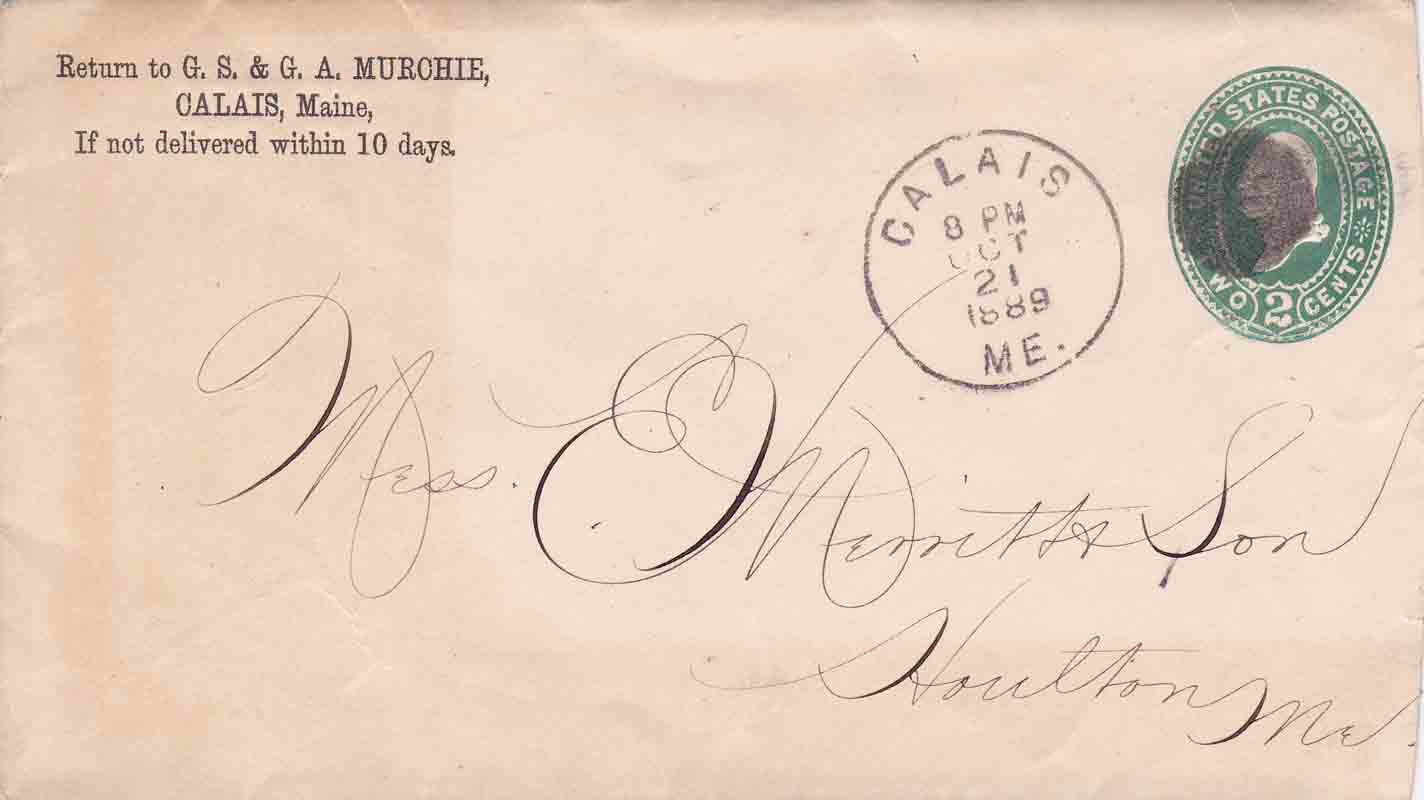 Return to G. S. & G. A. MURCHIE,
CALAIS, Maine,
If not delivered within 10 days.
CALAIS
8 PM
OCT
21
1889
ME.
UNITED STATES POSTAGE
TWO 2 CENTS
Mess. E Merritt & Son
Houlton Me.